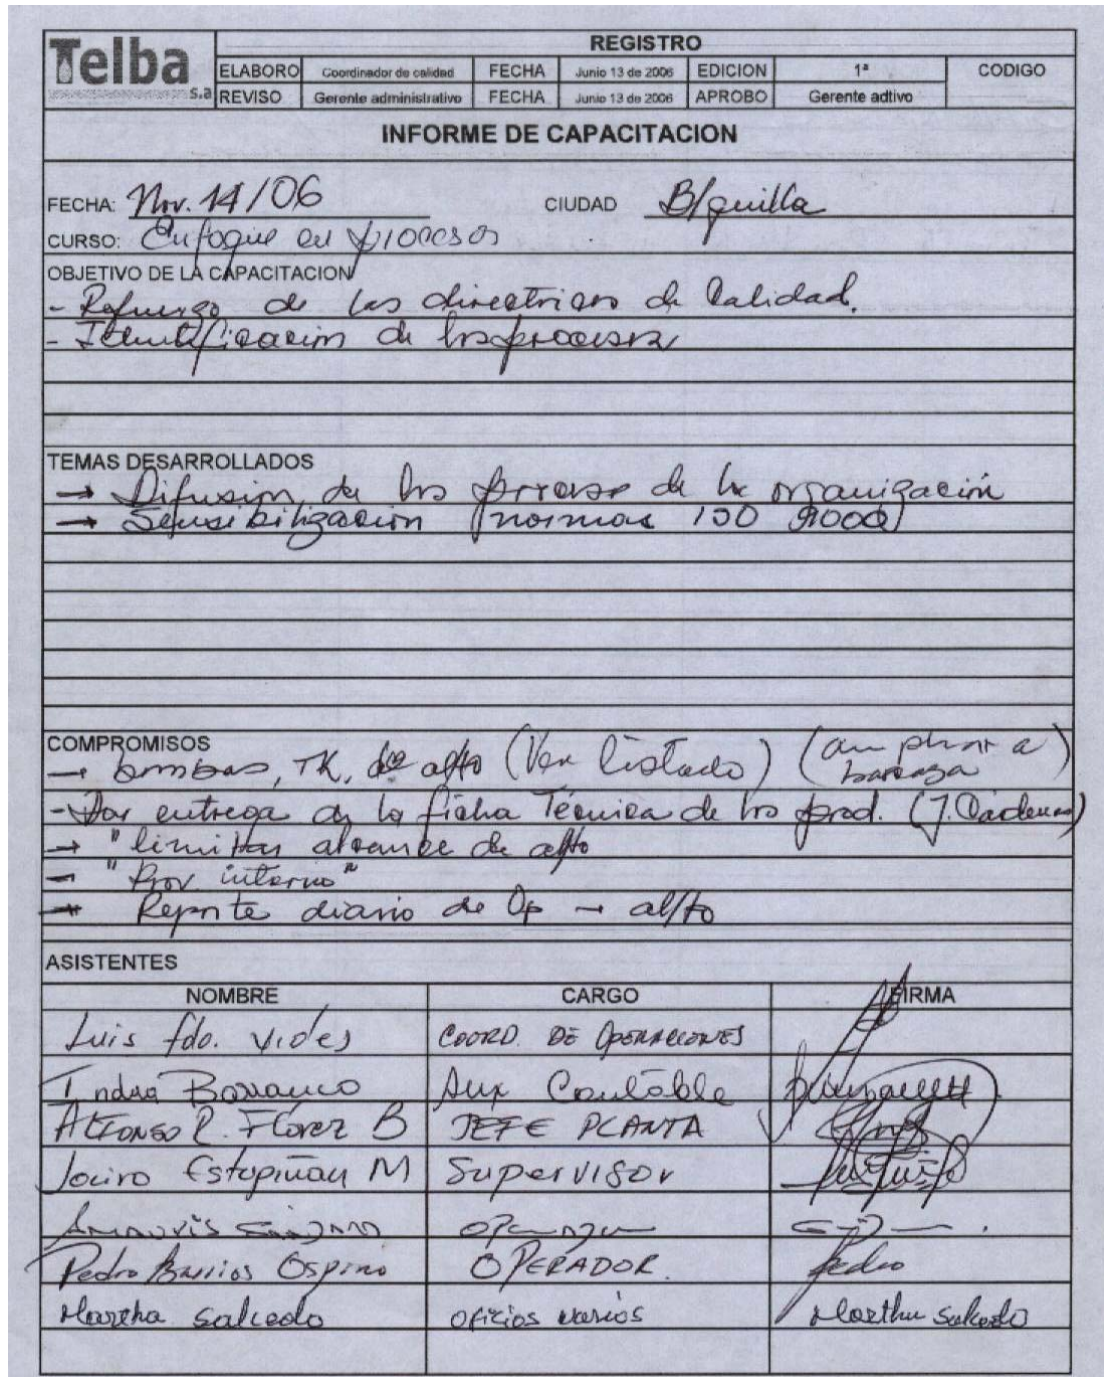 Telba s.a
REGISTRO
ELABORO Coordinador de calidad FECHA Junio 13 de 2006 EDICION 1ª CODIGO
REVISO Gerente administrativo FECHA Junio 13 de 2006 APROBO Gerente adtivo
INFORME DE CAPACITACION
FECHA: Nov. 14/06 CIUDAD B/quilla
CURSO: Enfoque en procesos
OBJETIVO DE LA CAPACITACION
- Refuerzo de las directrices de Calidad.
- Identificación de los procesos
TEMAS DESARROLLADOS
→ Difusión de los proceso de la organización
→ Sensibilización (normas ISO 9000)
COMPROMISOS
→ bombas, TK, de alfto (Ver listado) (ampliar a
- Dar entrega de la ficha Técnica de los prod. (J. Cárdenas)
→ "limitar alcance de alfto
→ "Prov. interno"
→ Reporte diario de Op → alfto
ASISTENTES
NOMBRE CARGO FIRMA
Luis fdo. Vides COORD. DE OPERACIONES
Indira Barranco Aux Contable
ALFONSO R. FLOREZ B JEFE PLANTA
Jairo Estupiñan M Supervisor
Pedro Barrios Ospino OPERADOR. Pedro
Martha Salcedo oficios varios Martha Salcedo